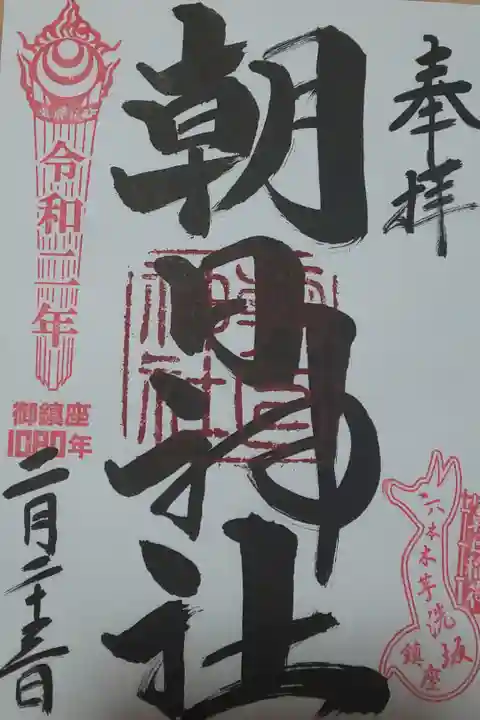 奉拝
朝日神社
令和二年
御鎮座
1080年
二月二十三日
六本木芋洗坂
鎮座